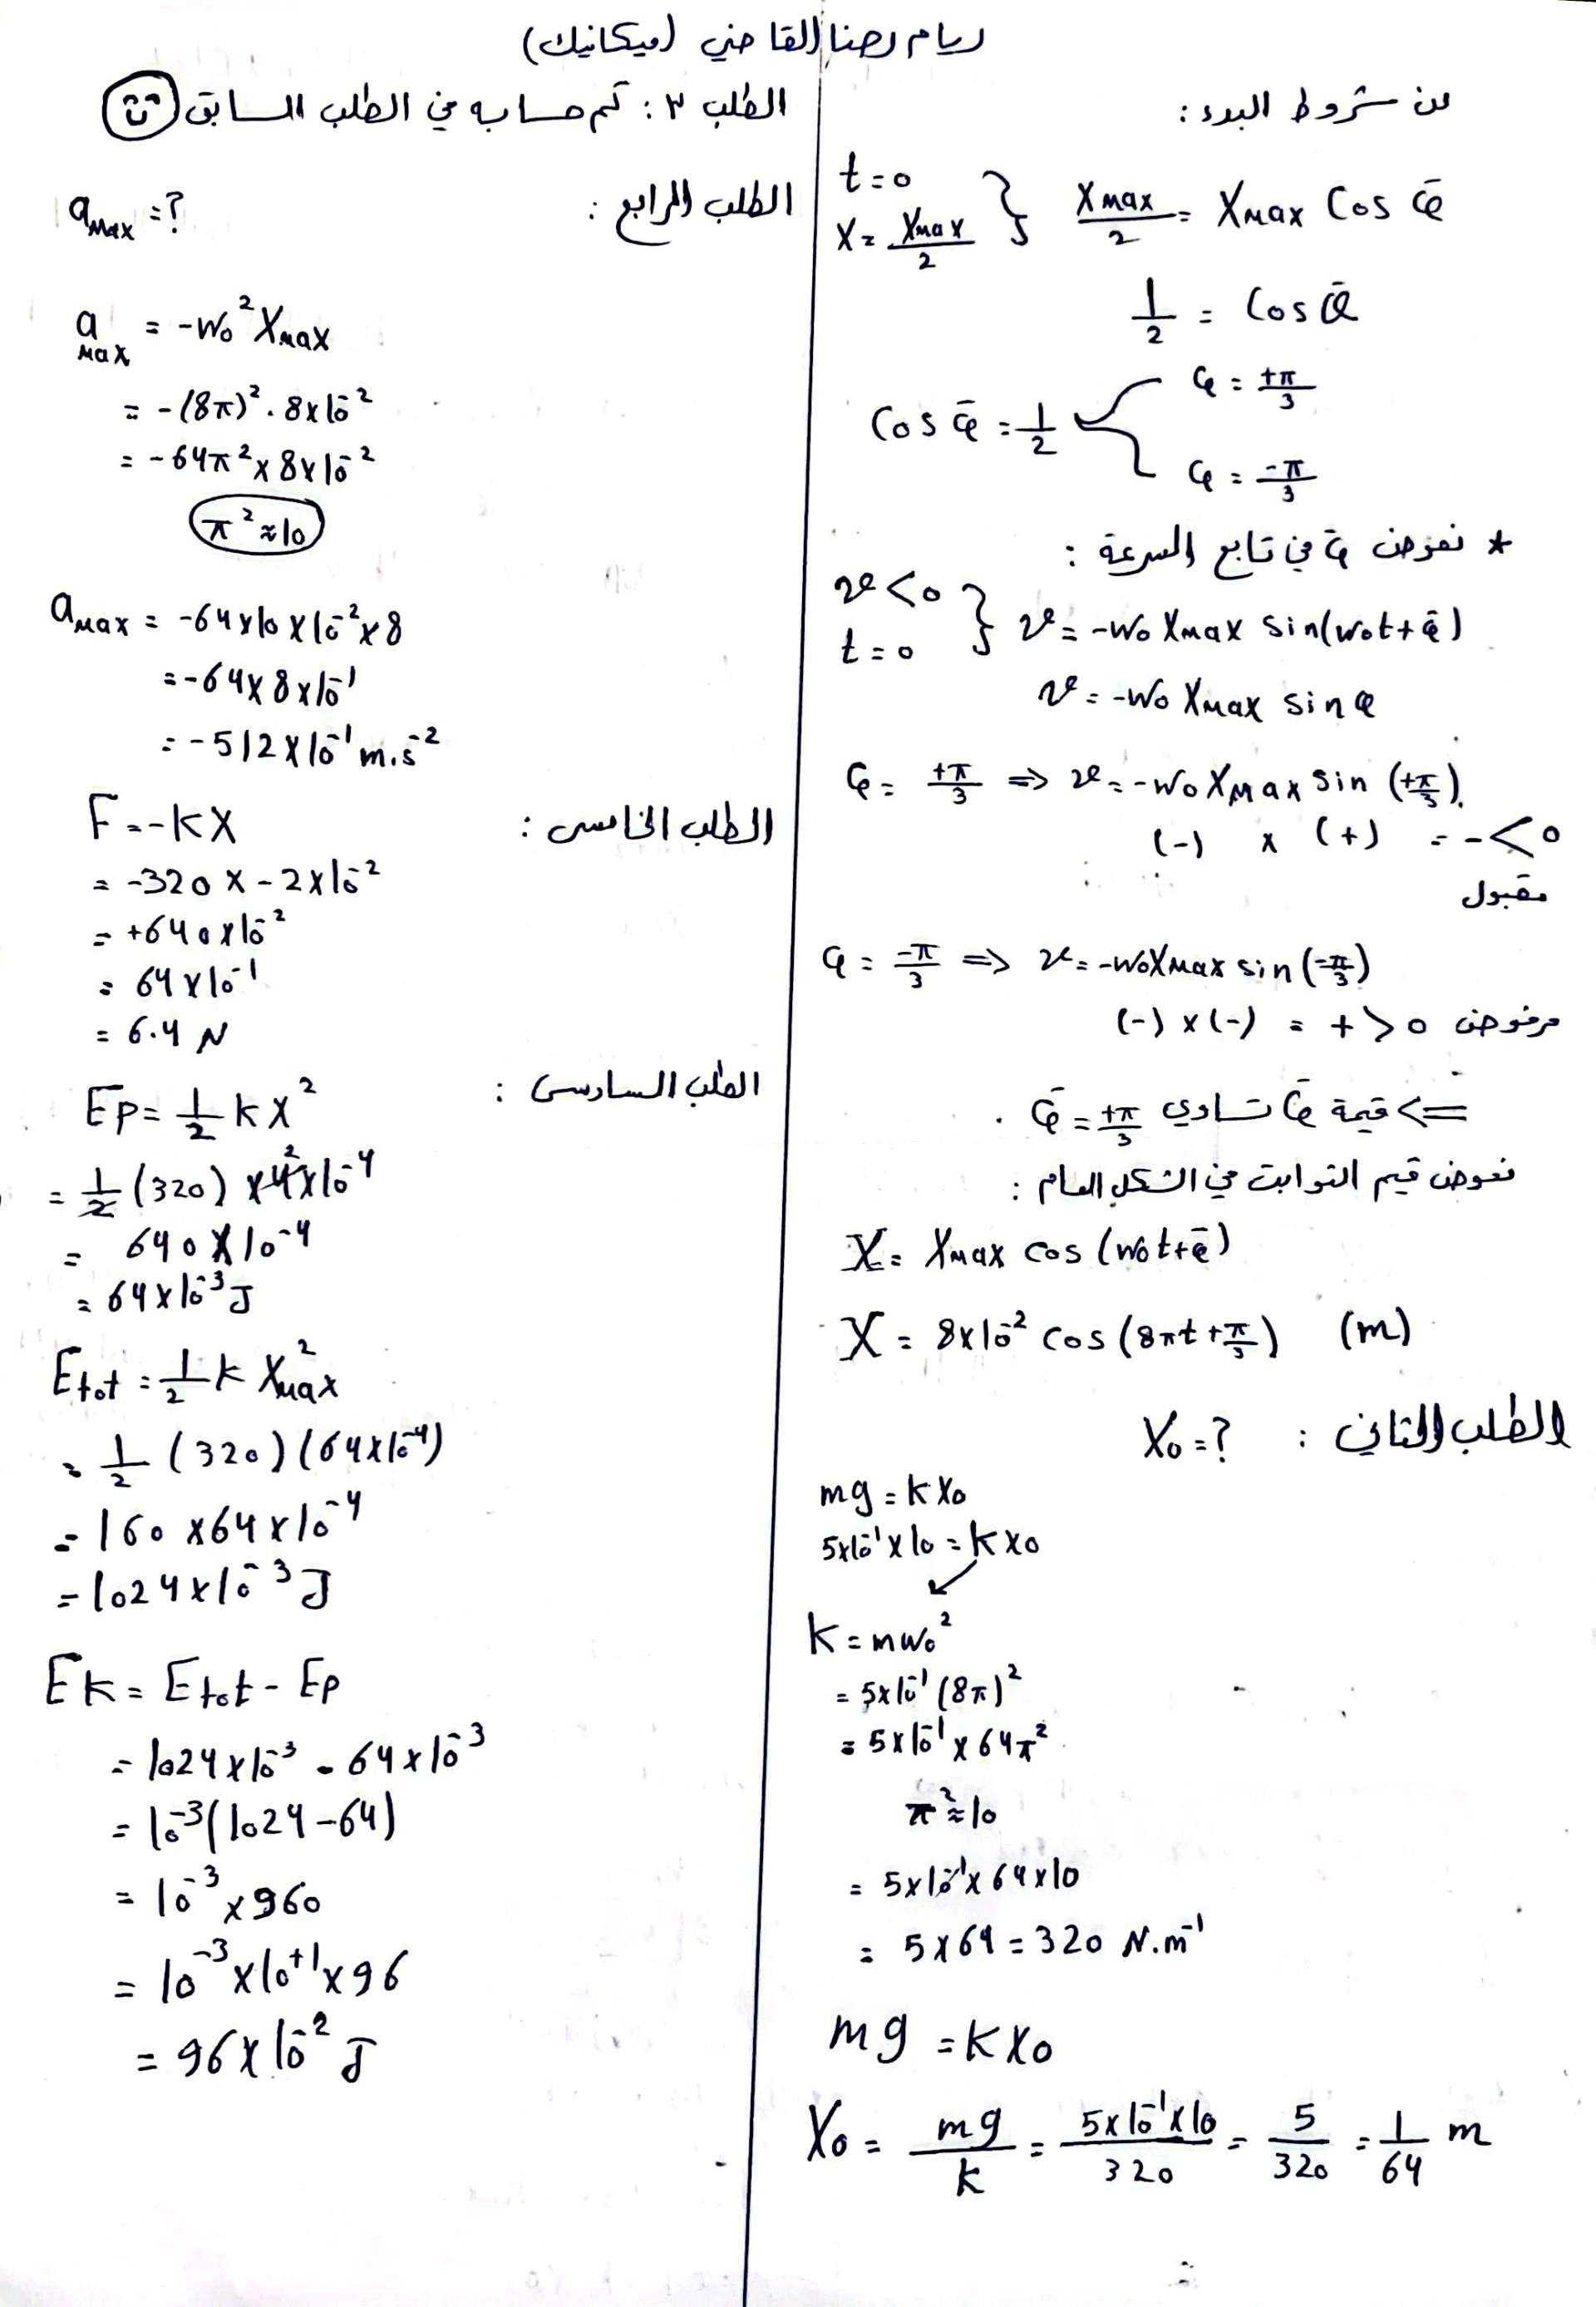 ريام رضا القاضي (ميكانيك)
من شروط البدء :
t=0
x= Xmax/2 } Xmax/2 = Xmax Cos φ̄
1/2 = Cos φ̄
Cos φ̄ = 1/2
φ = +π/3
φ = -π/3
* نعوض φ في تابع السرعة :
v<0
t=0 } v= -ω₀ Xmax sin(ω₀t+φ̄)
v= -ω₀ Xmax sin φ
φ= +π/3 => v= -ω₀ Xmax sin (+π/3)
(-) x (+) = - <0
مقبول
φ= -π/3 => v= -ω₀Xmax sin (-π/3)
(-) x (-) = + >0 مرفوض
=> قيمة φ̄ تساوي φ̄ = +π/3 .
نعوض قيم الثوابت في الشكل العام :
X= Xmax cos (ω₀t+φ̄)
X = 8x10⁻² cos (8πt+π/3) (m)
الطلب الثاني : X₀=?
mg = k X₀
5x10⁻¹ x 10 = k x₀
k = mω₀²
= 5x10⁻¹ (8π)²
= 5x10⁻¹ x 64π²
π²≈10
= 5x10⁻¹ x 64x10
= 5x64 = 320 N.m⁻¹
mg = kX₀
X₀ = mg/k = 5x10⁻¹x10/320 = 5/320 = 1/64 m
الطلب ٣ : تم حسابه في الطلب السابق
الطلب الرابع : amax =?
amax = -ω₀² Xmax
= -(8π)² . 8x10⁻²
= -64π² x 8x10⁻²
π²≈10
amax = -64x10x10⁻²x8
= -64x8x10⁻¹
= -512x10⁻¹ m.s⁻²
الطلب الخامس : F=-kX
= -320 x -2x10⁻²
= +640x10⁻²
= 64x10⁻¹
= 6.4 N
الطلب السادس : Ep= 1/2 k X²
= 1/2 (320) x4x10⁻⁴
= 640x10⁻⁴
= 64x10⁻³ J
Etot = 1/2 k Xmax²
= 1/2 (320)(64x10⁻⁴)
= 160 x64x10⁻⁴
= 1024x10⁻³ J
Ek= Etot - Ep
= 1024x10⁻³ - 64x10⁻³
= 10⁻³(1024-64)
= 10⁻³ x960
= 10⁻³x10⁺¹x96
= 96x10⁻² J